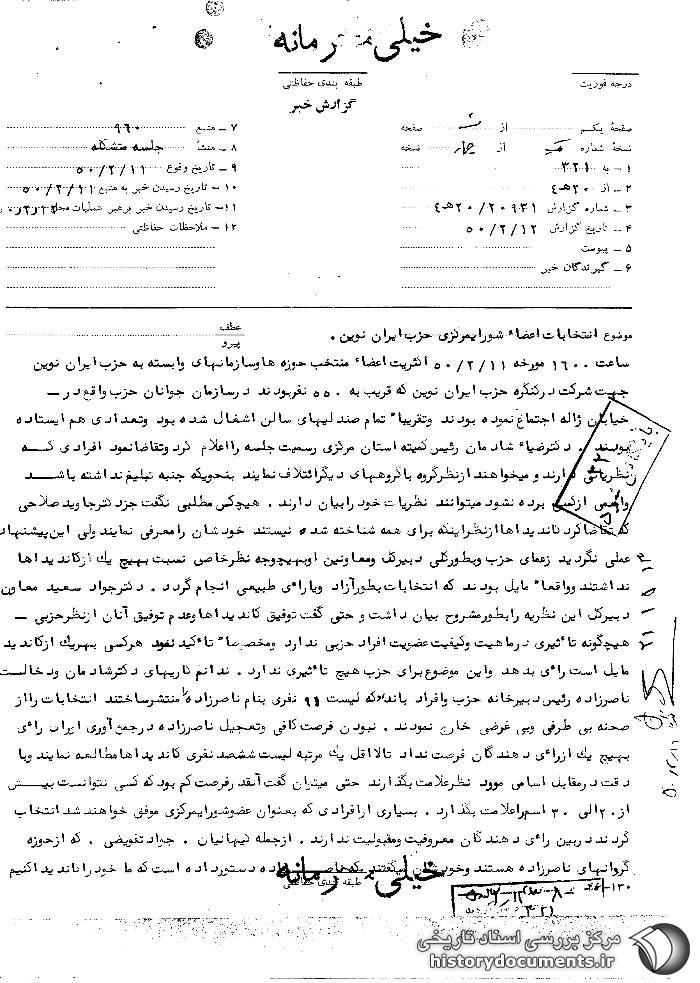 خیلی محرمانه
درجه فوریت
طبقه بندی حفاظتی
گزارش خبر
صفحهٔ یکم از صفحه
نسخهٔ شماره یک از چهار نسخه
۱ – به ۳۲۱
۲ – از ۲۰هـ۴
۳ – شماره گزارش ۲۰۹۳۱/۲۰هـ۴
۴ – تاریخ گزارش ۵۰/۲/۱۲
۵ – پیوست
۶ – گیرندگان خبر
۷ – منبع ۹۶۰
۸ – منشأ جلسه متشکله
۹ – تاریخ وقوع ۵۰/۲/۱۱
۱۰ – تاریخ رسیدن خبر به منبع ۵۰/۲/۱۱
۱۱– تاریخ رسیدن خبر برهبر عملیات محل
۱۲ – ملاحظات حفاظتی
موضوع انتخابات اعضاء شورایمرکزی حزب ایران نوین .
عطف
پیرو
ساعت ۱۶۰۰ مورخه ۵۰/۲/۱۱ اکثریت اعضاء منتخب حوزه هاوسازمانهای وابسته به حزب ایران نوین
جهت شرکت درکنگره حزب ایران نوین که قریب به ۵۵۰ نفربودند درسازمان جوانان حزب واقع در –
خیابان ژاله اجتماع نموده بودند وتقریباً تمام صندلیهای سالن اشغال شده بود وتعدادی هم ایستاده
بودند . دکترضیاء شادمان رئیس کمیته استان مرکزی رسمیت جلسه رااعلام کرد وتقاضانمود افرادی که
نظریاتی دارند و میخواهند ازنظرگروه باگروههای دیگرائتلاف نمایند بنحویکه جنبه تبلیغ نداشته باشد
واسمی ازکسی برده نشود میتوانند نظریات خودرابیان دارند . هیچکس مطلبی نگفت جزدکترجاوید صلاحی
که تقاضاکردکاندیداهاازنظراینکه برای همه شناخته شده نیستند خودشان رامعرفی نمایند ولی این پیشنهاد
عملی نگردید زعمای حزب وبطورکلی دبیرکل ومعاونین اوبهیچوجه نظرخاص نسبت بهیچ یك ازکاندیداها
نداشتند وواقعاً مایل بودند که انتخابات بطورآزاد وبارای طبیعی انجام گردد . دکترجواد سعید معاون
دبیرکل این نظریه رابطورمشروح بیان داشت و حتی گفت توفیق کاندیداهاوعدم توفیق آنان ازنظرحزبی –
هیچگونه تأثیری درماهیت وکیفیت عضویت افراد حزبی ندارد ومخصوصاً تأکید نمود هرکسی بهریك ازکاندیداها
مایل است رأی بدهد واین موضوع برای حزب هیچ تأثیری ندارد . ندانم کاریهای دکترشادمان ودخالت
ناصرزاده رئیس دبیرخانه حزب وافراد باندش که لیست ۹۹ نفری بنام ناصرزاده منتشرساختند انتخابات رااز
صحنه بی طرفی وبی غرضی خارج نمودند . نبودن فرصت کافی وتعجیل ناصرزاده درجمع آوری ایران رأی
بهیچ یك ازرأی دهندگان فرصت نداد تااقل یك مرتبه لیست ششصد نفری کاندیداهامطالعه نمایند وبا
دقت درمقابل اسامی مورد نظرعلامت بگذارند حتی میتوان گفت آنقدرفرصت کم بودکه کسی نتوانست بیش
از۲۰ الی ۳۰ اسم راعلامت بگذارد . بسیاری ازافرادی که بعنوان عضوشورایمرکزی موفق خواهند شد انتخاب
گردند دربین رأی دهندگان معروفیت ومقبولیت ندارند . ازجمله کیهانیان . جواد تفویضی . که ازحوزه
گردانهای ناصرزاده هستند وخودشان میگفتند که ناصرزاده دستورداده است که ما خودراکاندیداکنیم
خیلی محرمانه
طبقه بندی حفاظتی
۳۲۱
مرکز بررسی اسناد تاریخی
historydocuments.ir